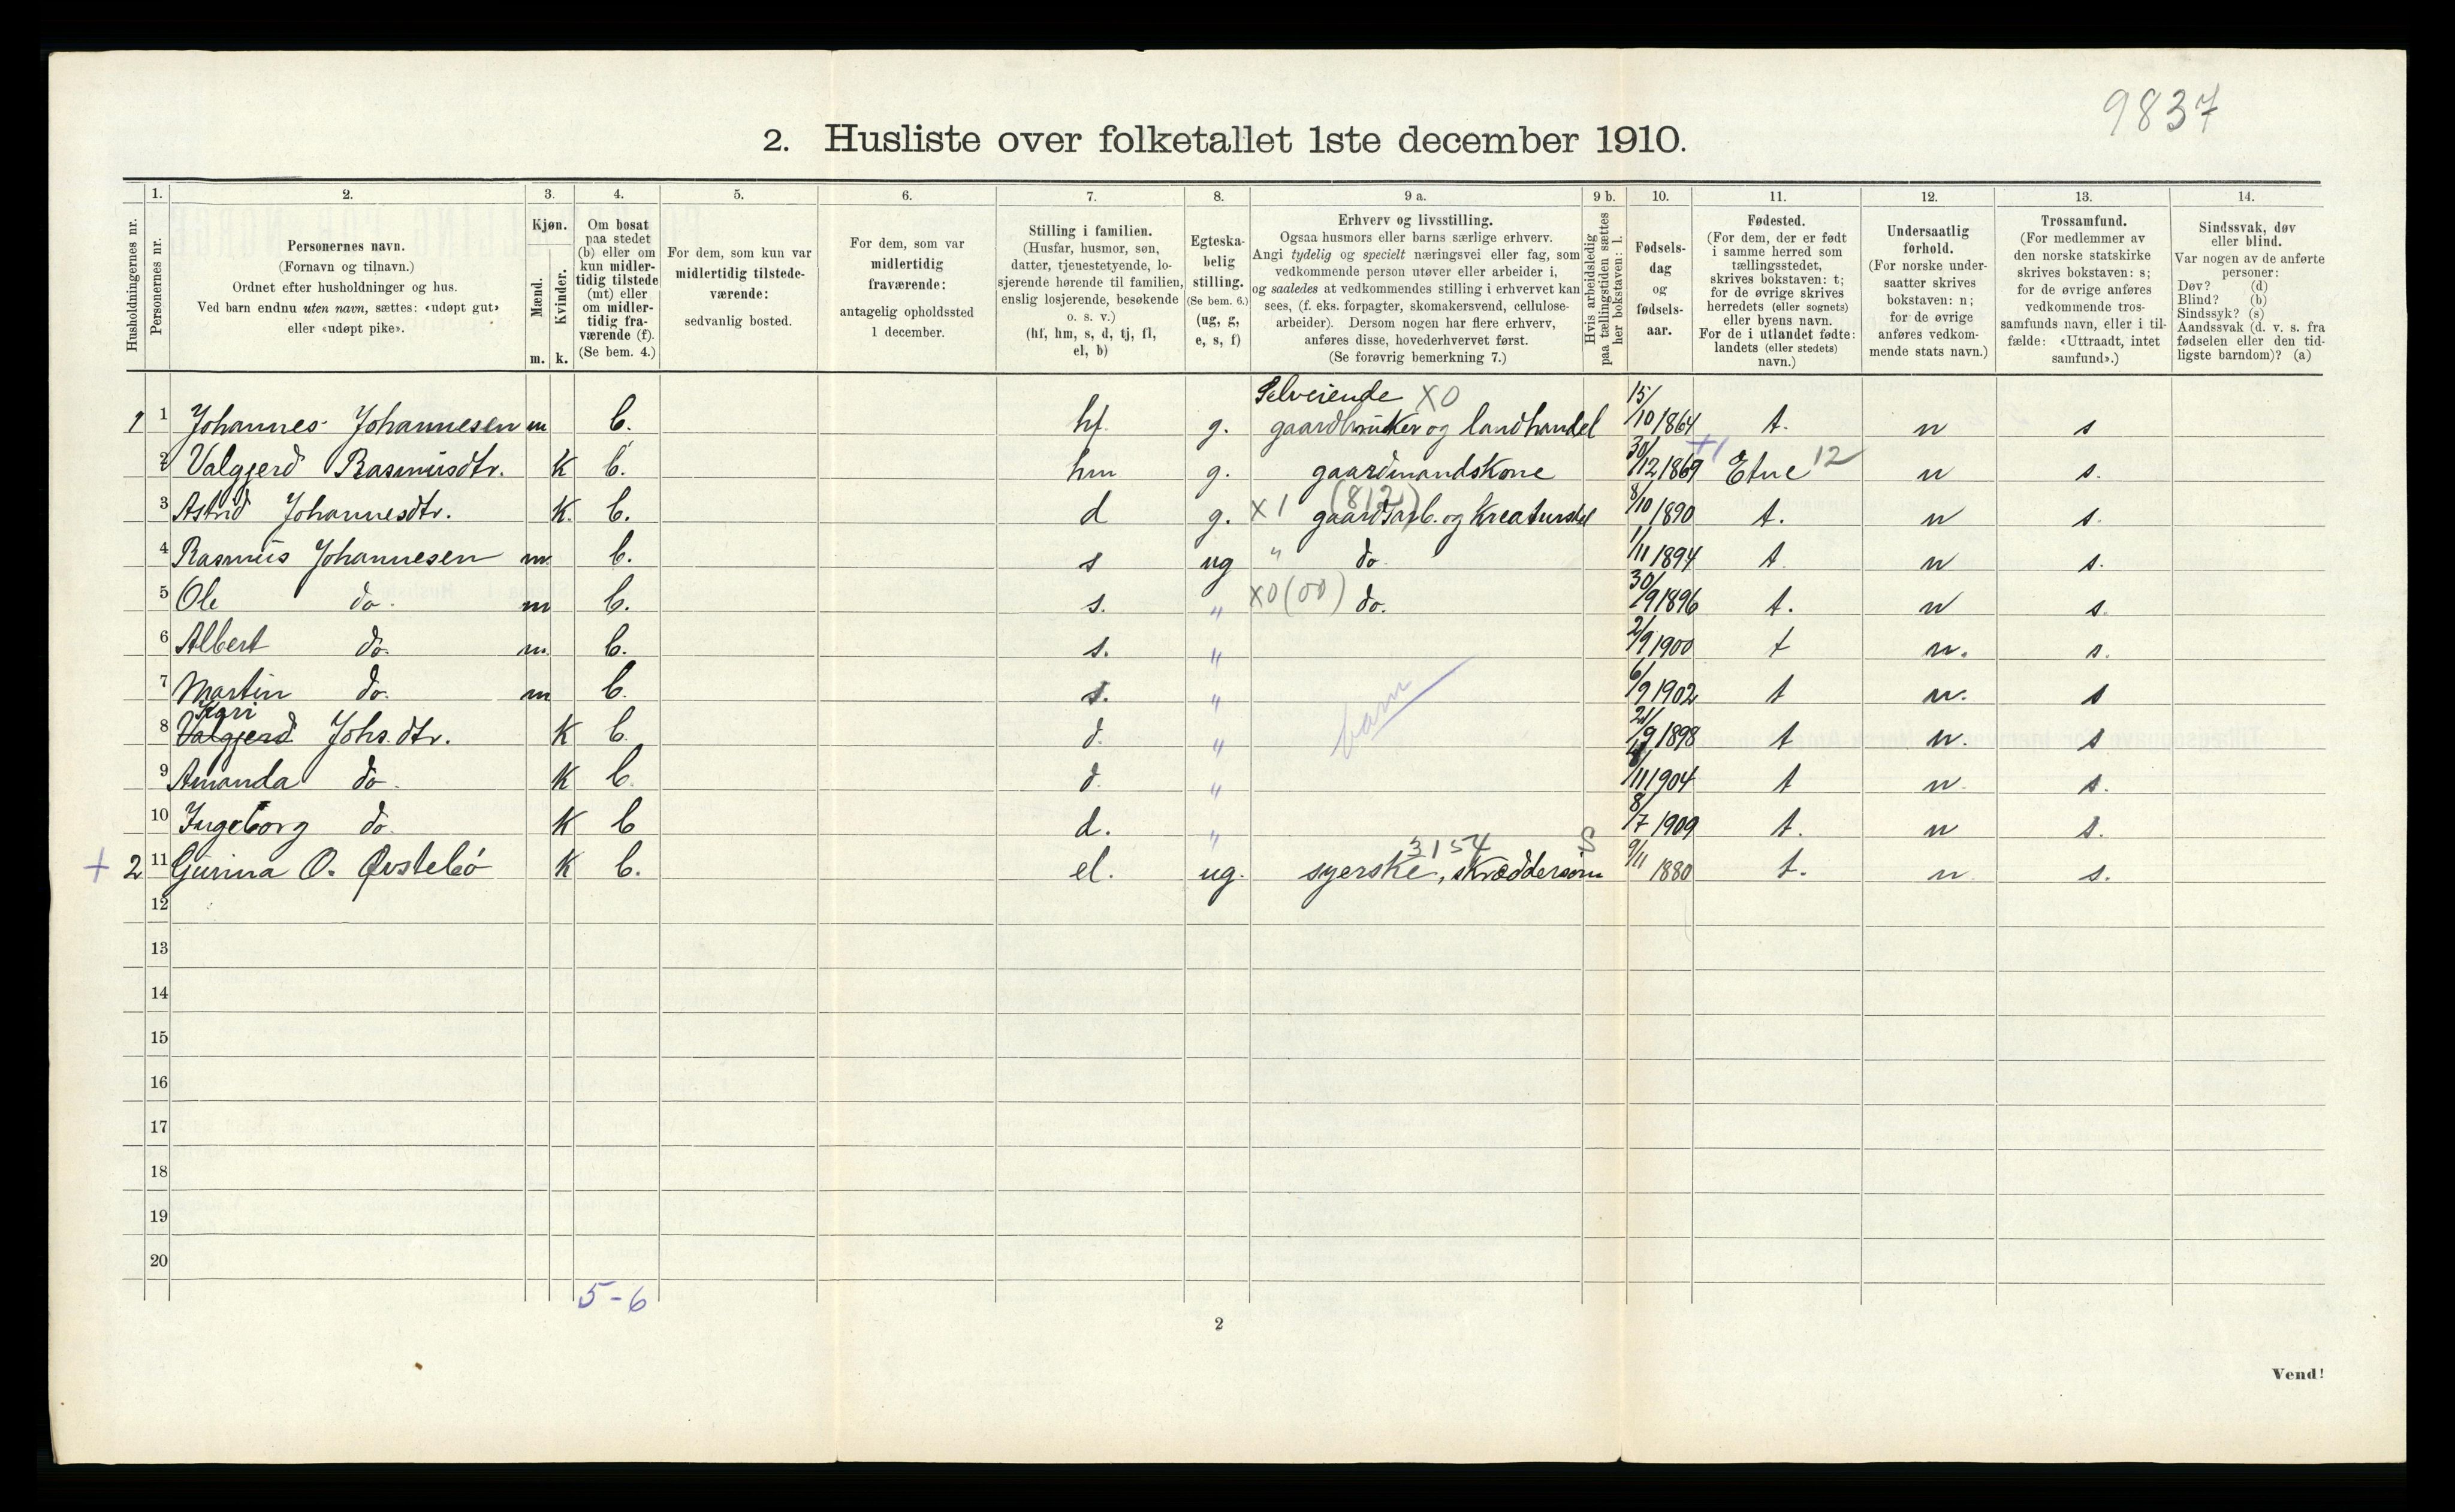 9837
2. Husliste over folketallet 1ste december 1910.
Husholdningernes nr.
1.
Personernes nr.
2.
Personernes navn.
(Fornavn og tilnavn.)
Ordnet efter husholdninger og hus.
Ved barn endnu uten navn, sættes: «udøpt gut»
eller «udøpt pike».
3.
Kjøn.
Mænd.
Kvinder.
m. k.
4.
Om bosat
paa stedet
(b) eller om
kun midler-
tidig tilstede
(mt) eller
om midler-
tidig fra-
værende (f).
(Se bem. 4.)
5.
For dem, som kun var
midlertidig tilstede-
værende:
sedvanlig bosted.
6.
For dem, som var
midlertidig
fraværende:
antagelig opholdssted
1 december.
7.
Stilling i familien.
(Husfar, husmor, søn,
datter, tjenestetyende, lo-
sjerende hørende til familien,
enslig losjerende, besøkende
o. s. v.)
(hf, hm, s, d, tj, fl,
el, b)
8.
Egteska-
belig
stilling.
(Se bem. 6.)
(ug, g,
e, s, f)
9 a.
Erhverv og livsstilling.
Ogsaa husmors eller barns særlige erhverv.
Angi tydelig og specielt næringsvei eller fag, som
vedkommende person utøver eller arbeider i,
og saaledes at vedkommendes stilling i erhvervet kan
sees, (f. eks. forpagter, skomakersvend, cellulose-
arbeider). Dersom nogen har flere erhverv,
anføres disse, hovederhvervet først.
(Se forøvrig bemerkning 7.)
9 b.
Hvis arbeidsledig
paa tællingstiden sættes
her bokstaven: l.
10.
Fødsels-
dag
og
fødsels-
aar.
11.
Fødested.
(For dem, der er født
i samme herred som
tællingsstedet,
skrives bokstaven: t;
for de øvrige skrives
herredets (eller sognets)
eller byens navn.
For de i utlandet fødte:
landets (eller stedets)
navn.)
12.
Undersaatlig
forhold.
(For norske under-
saatter skrives
bokstaven: n;
for de øvrige
anføres vedkom-
mende stats navn.)
13.
Trossamfund.
(For medlemmer av
den norske statskirke
skrives bokstaven: s;
for de øvrige anføres
vedkommende tros-
samfunds navn, eller i til-
fælde: «Uttraadt, intet
samfund».)
14.
Sindssvak, døv
eller blind.
Var nogen av de anførte
personer:
Døv? (d)
Blind? (b)
Sindssyk? (s)
Aandssvak (d. v. s. fra
fødselen eller den tid-
ligste barndom)? (a)
Selveiende X0
1 1 Johannes Johannesen m b. hf. g. gaardbruker og landhandel 15/10 1864 t. n s
2 Valgjerd Rasmusdtr. k b. hm g. gaardmandskone 30/12 1869 Etne 12 n s.
3 Astrid Johannesdtr. k. b. d g. X1 (812) gaardsarb. og Kreaturstel 8/10 1890 t. n s.
4 Rasmus Johannesen m. b. s ug " do. 1/11 1894 t. n s.
5 Ole do. m b. s. " X0(00) do. 30/9 1896 t. n s.
6 Albert do. m. b. s. " 2/9 1900 t n. s.
7 Martin do. m b. s. " barn 6/9 1902 t n. s
Kari
8 Valgjerd Johs.dtr. k b. d. " 21/9 1898 t n. s
9 Amanda do. k b. d. " /11 1904 t n. s.
10 Ingeborg do. k b d. " 8/7 1909 t. n s.
3154 S
+ 2 11 Gurina O. Østebø k b. el. ug. syerske, skræddersøm 9/11 1880 t. n. s.
12
13
14
15
16
17
18
19
20
5-6
2
Vend!